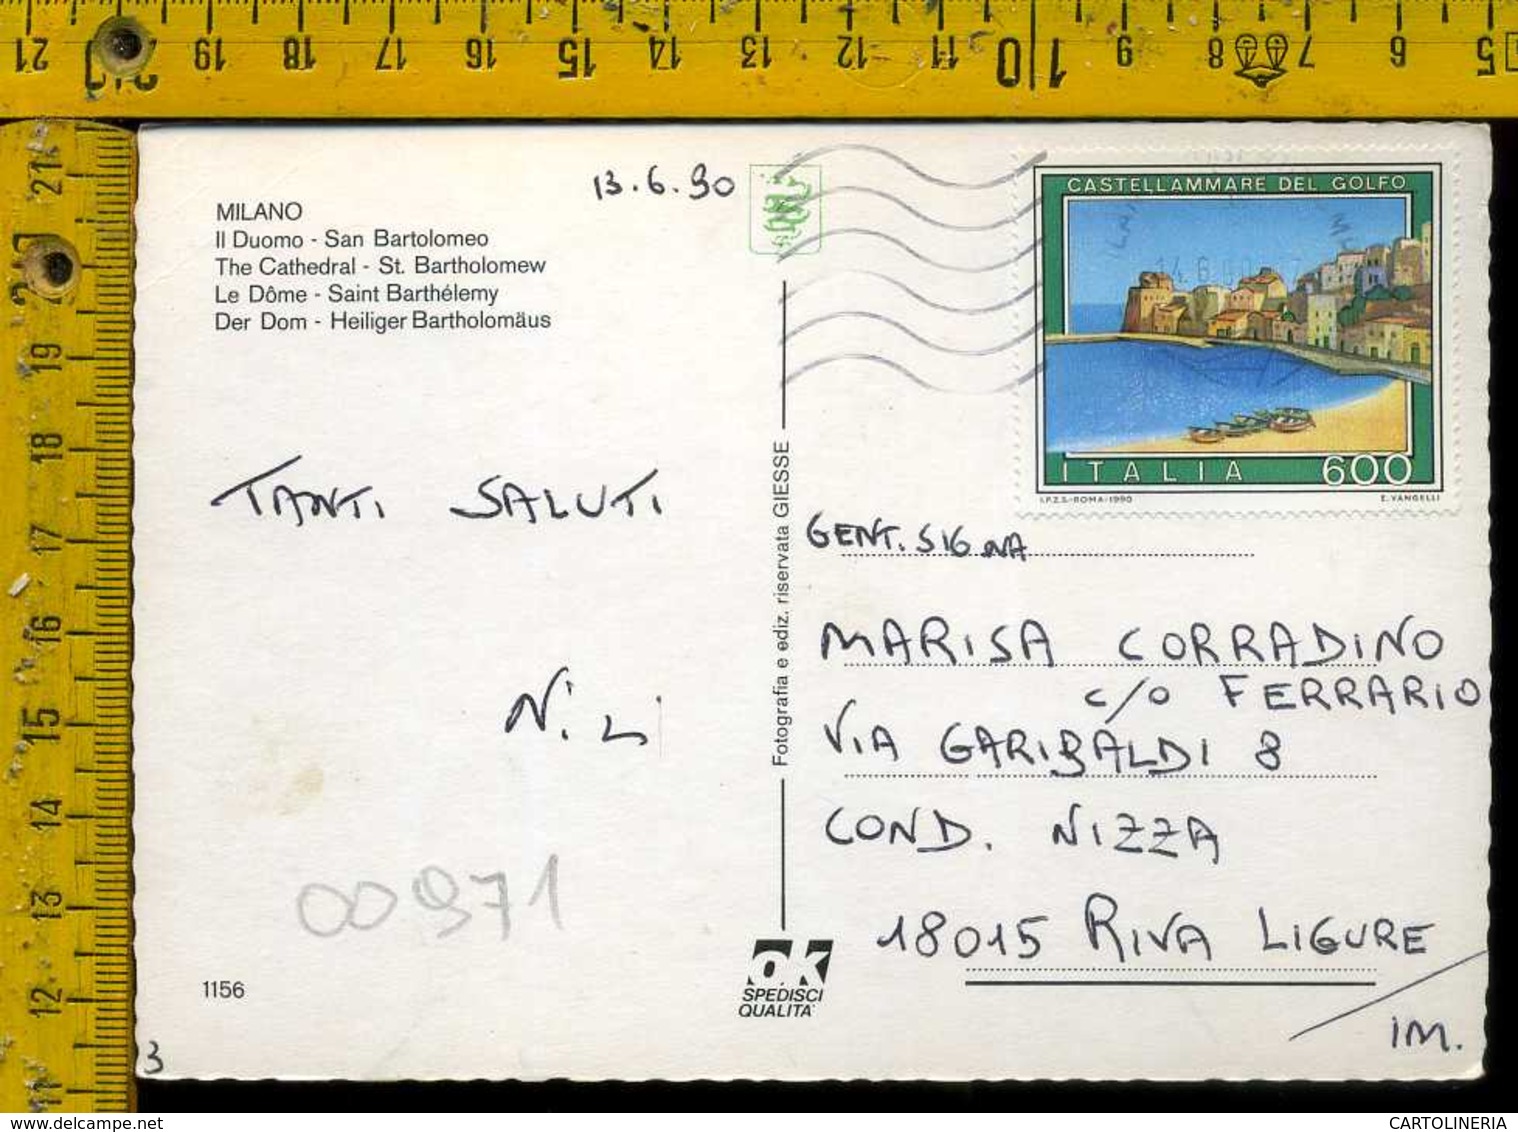 MILANO
Il Duomo - San Bartolomeo
The Cathedral - St. Bartholomew
Le Dôme - Saint Barthélemy
Der Dom - Heiliger Bartholomäus
13.6.90
CASTELLAMMARE DEL GOLFO
ITALIA 600
I.P.Z.S.-ROMA-1990 E. VANGELLI
TANTI SALUTI
GENT. SIG.NA
MARISA CORRADINO
c/o FERRARIO
VIA GARIBALDI 8
COND. NIZZA
18015 RIVA LIGURE
IM.
Fotografia e ediz. riservata GIESSE
00971
1156
OK
SPEDISCI
QUALITA'
3
21 20 19 18 17 16 15 14 13 12 11 10 9 8 7 6 5
21 20 19 18 17 16 15 14 13 12 11
delcampe.net
CARTOLINERIA